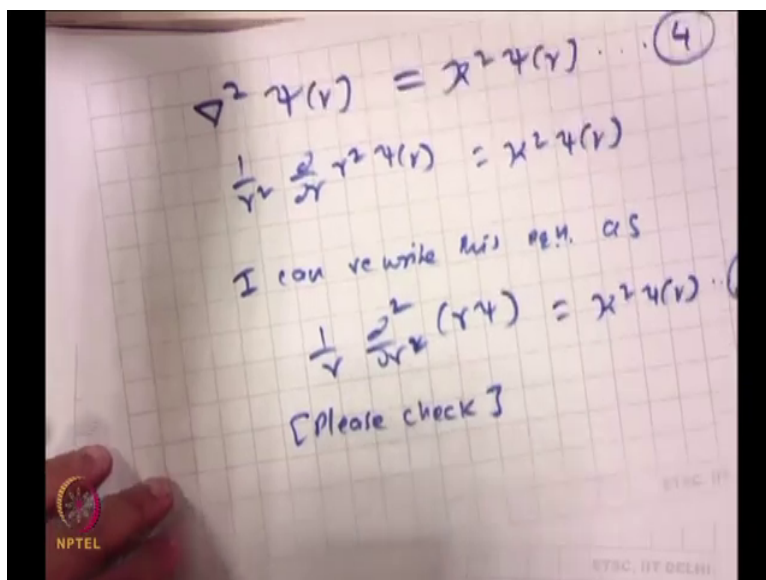 ∇² ψ(r) = ϰ² ψ(r) ... ④
1/r² ∂/∂r r² ψ(r) = ϰ² ψ(r)
I can rewrite this eqn. as
1/r ∂²/∂r² (rψ) = ϰ² ψ(r) .. (
[Please check]
ETSC, IIT
NPTEL
ETSC, IIT DELHI